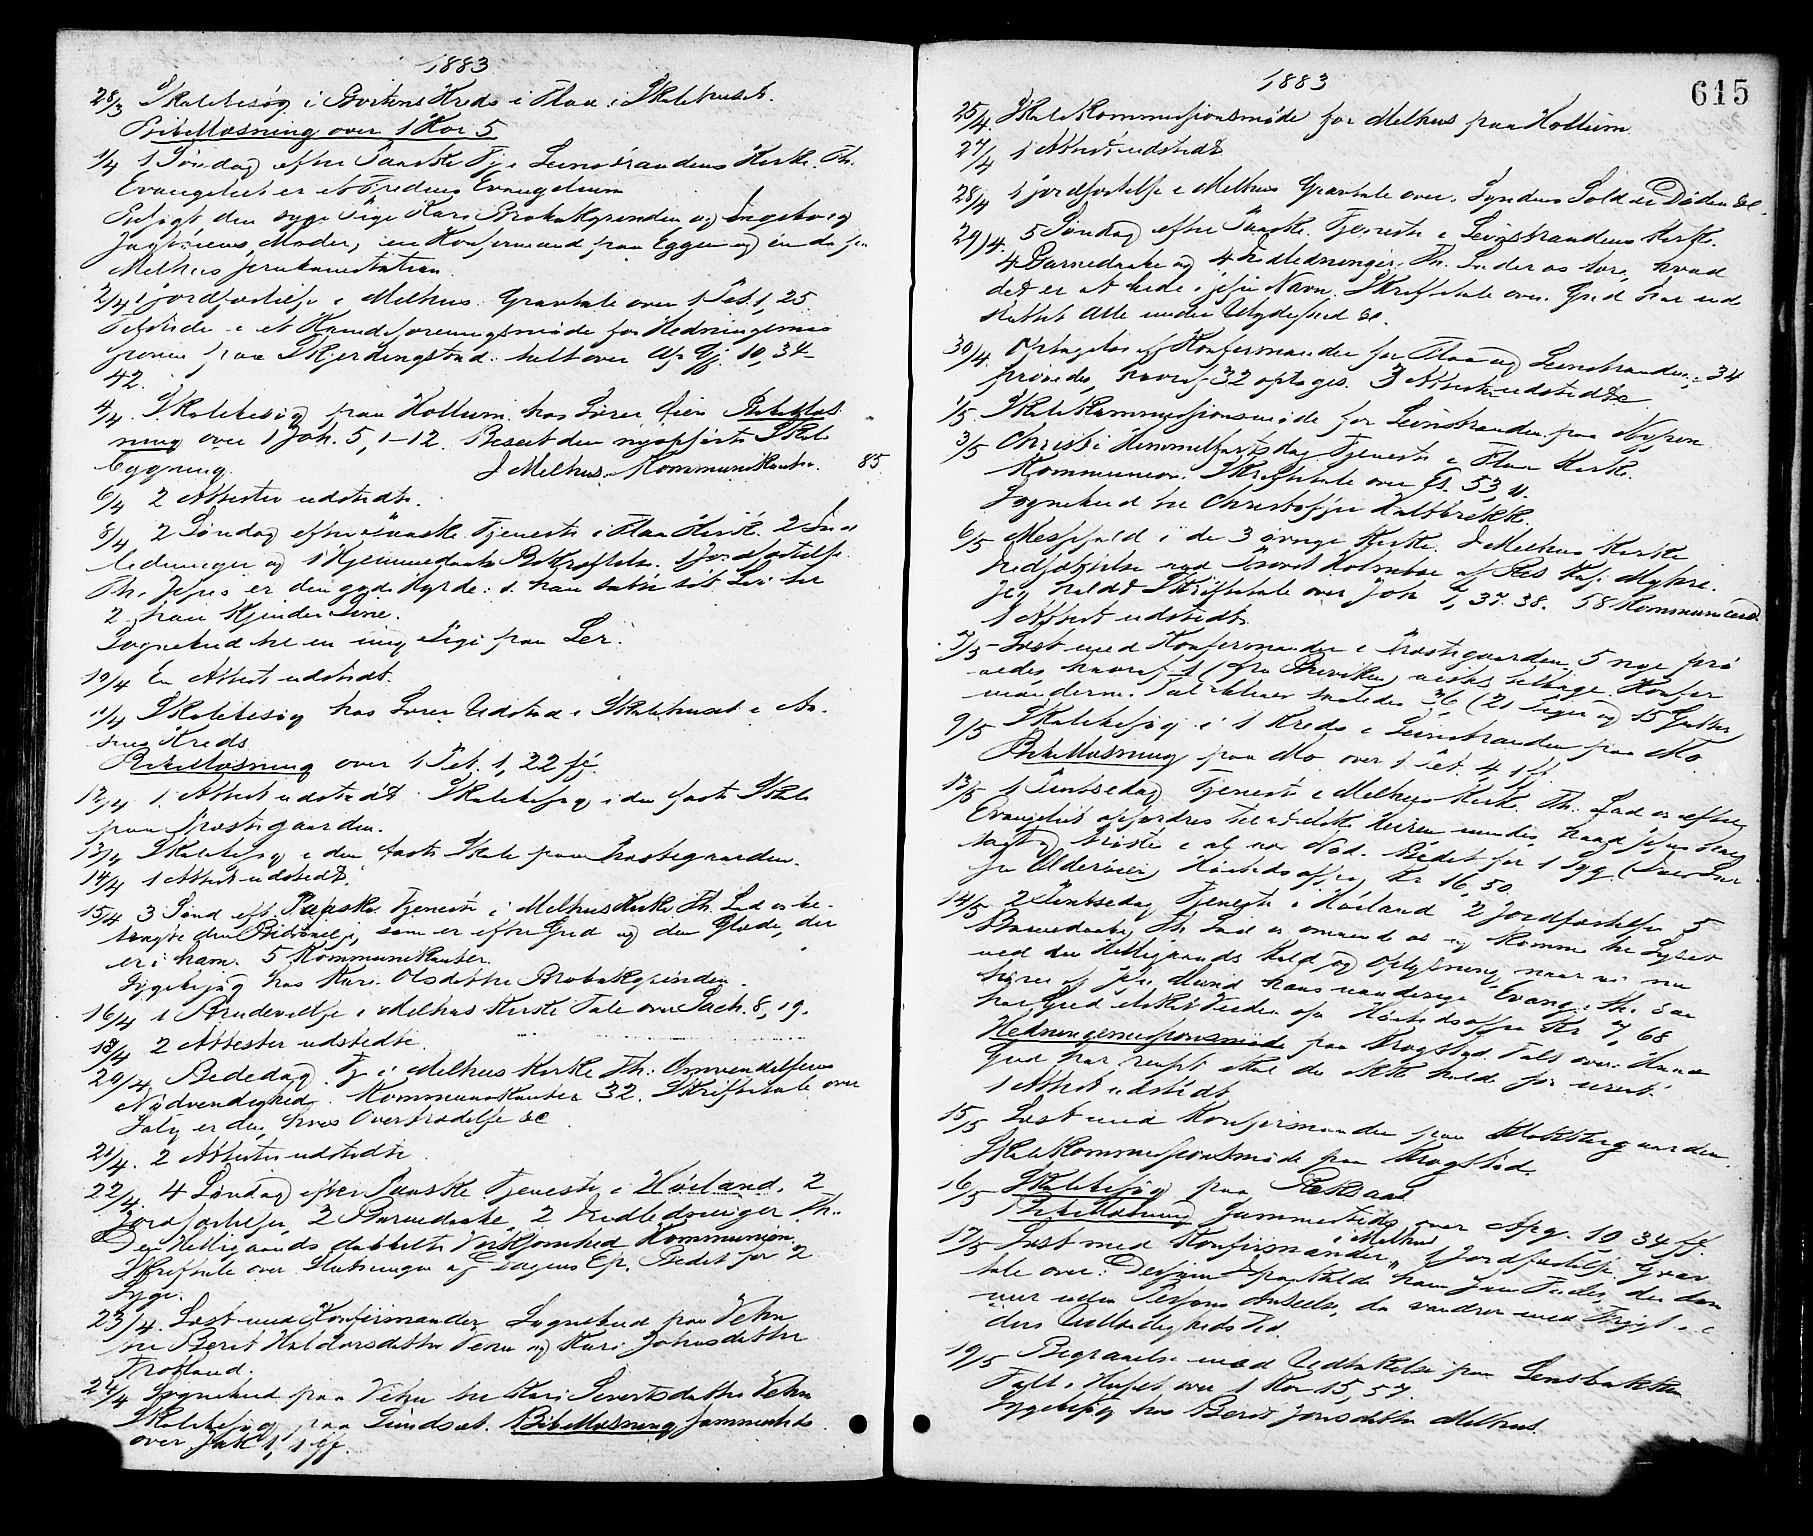 1883
28/3 Skolebesøg i Bortens Kreds i Flaa i Skolehuset.
Bibellæsning over 1 Kor 5
1/4 1 Søndag efter Paaske Tj. i Leinstrandens Kirke. Th.
Evangeliet er et Fredens Evangelium
Besøgt den syge Pige Kari Brobakgrinden og Ingeborg
Moder, en Konfirmand fra Eggen og
Melhus
2/4 1 Jordfæstelse i Melhus. Gravtale over 1 Pet. 1, 25
i et Kvindeforeningsmøde for Hedningemis
sionen paa Skjerdingstad. talt over Ap. Gj. 10, 34-
42.
4/4. Skolebesøg paa Hollum hos Lærer Øien Bibellæs
ning over 1 Joh. 5, 1-12. Beseet den nyopførte Skole
bygning. I Melhus Kommunikanter. 85
6/4 2 Attester udstedt.
8/4 2 Søndag efter Paaske. Tjeneste i Flaa Kirke. 2 Ind
ledninger og 1 Hjemmedaabs Bekræftelse. 1 Jordfæstelse.
Th. Jesus er den gode Hyrde: 1. han satte sit Liv til
2 han kjender sine.
Sognebud til en ung Pige paa Ler.
10/4 En Attest udstedt.
11/4 Skolebesøg hos Lærer Udstad i Skolehuset i
Kreds
Bibellæsning over 1 Pet. 1, 22 ff.
12/4 1. Attest udstedt Skolebesøg i den faste Skole
paa Præstegaarden.
13/4 Skolebesøg i den faste Skole paa Præstegaarden.
14/4 1 Attest udstedt.
15/4 3 Sønd eft. Paaske. Tjeneste i Melhus Kirke Th. Lad os be-
tragte den Bedrøvelse, som er efter Gud og den Glæde, der
er i ham. 5 Kommunikanter.
Sygebesøg hos Kari Olsdatter Brobakgrinden.
16/4 1 Brudevielse i Melhus Kirke Tale over Sach. 8, 19.
18/4 2 Attester udstedte.
20/4. Bededag. Tj i Melhus Kirke Th: Omvendelsens
Nødvendighed. Kommunikanter 32. Skriftetale over
Salig er den, hvis Overtrædelse &c
21/4. 2 Attester udstedte
22/4. 4 Søndag efter Paaske Tjeneste i Høiland. 2
Jordfæstelser, 2 Barnedaabe, 2 Indledninger. Th.
Den Helligaands dobbelte Virksomhed Kommunion.
Skriftetale over Slutningen af Dagens Ep. Bedet for 2
Syge.
23/4. Læst med Konfirmander Sognebud paa Vehn
til Beret Haldorsdatter Vehn og Kari Johnsdatter
24/4 Sognebud paa Vehn til Kari Sivertsdatter Vehn
Skolebesøg paa Bibellæsning sammesteds
over Jak 1, 1 ff.
1883
615
25/4. Skolekommissionsmøde for Melhus paa Hollum.
27/4 1 Attest udstedt
28/4 1 Jordfæstelse i Melhus Gravtale over. Syndens Sold er Døden &c.
29/4. 5 Søndag efter Paaske. Tjeneste i Leinstrandens Kirke.
4 Barnedaabe og 4 Indledninger. Th. Lader os lære, hvad
det er at bede i Jesu Navn. Skriftetale over. Gud har ind
sluttet Alle under Ulydighed &c.
30/4. Optagelse af Konfirmander for Flaa og Leinstranden; 34
prøvedes, hvoraf 32 optoges. 3 Attester udstedte
1/5 Skolekommissionsmøde for Leinstranden paa Nypen
3/5 Christi Himmelfartsdag Tjeneste i Flaa Kirke.
Kommunion. Skriftetale over Es. 53, 11.
Sognebud til Christoffer Kaltbrekk.
6/5 Messefald i de 3 øvrige Kirker. I Melhus Kirke
af Res. Kap. Myhre.
Jeg holdt Skriftetale over Joh 7, 37. 38. 58 Kommunicand.
1 Attest udstedt
7/5 Læst med Konfirmander i Præstegaarden, 5 nye prø
vedes, hvoraf 1 (fra ) tilbage. Konfir
mandernes Tal bliver saaledes 36 (21 Piger og 15 Gutter)
9/5 Skolebesøg i 1 Kreds i Leinstranden paa Mo
Bibellæsning paa Mo over 1 Pet. 4, 1 ff.
13/5 1 Pintsedag Tjeneste i Melhus Kirke. Th. Lad os efter
Evangeliets opfordres til at elske Herren hvad Jesus
trøste i al vor Nød. Bedet for 1 Syg (
fra ) Høitidsoffer Kr 16,50.
14/5 2 Pintsedag Tjeneste i Høiland 2 Jordfæstelser 5
Barnedaabe, Th. Lad os omvende os og komme til Lyset
ved den Helligaands Kald og Oplysning, naar vi nu
hører af Jesu Mund hans underlige Evang: Th. saa
har Gud elsket Verden &c Høitidsoffer Kr 7,68
Hedningemissionsmøde paa Krogstad. Talt over: Hvad
Gud har renset skal du ikke holde for urent.
1 Attest udstedt.
15/5 Læst med Konfirmander paa Klokkergaarden.
Skolekommissionsmøde paa Krogstad.
16/5 Skolebesøg paa
Bibellæsning sammesteds over Apg. 10 34 ff.
17/5 Læst med Konfirmander, i Melhus 1 Jordfæstelse Grav
tale over: Dersom I paakalde ham som Fader, der døm
mer uden Persons Anseelse, da vandrer med Frygt i E
ders Udlændigheds Tid.
19/5 Begravelse med Udtakelse paa Lensbakken
Talt i Huset over 1 Kor 15, 57.
Sygebesøg hos Beret Jonsdatter Melhus.